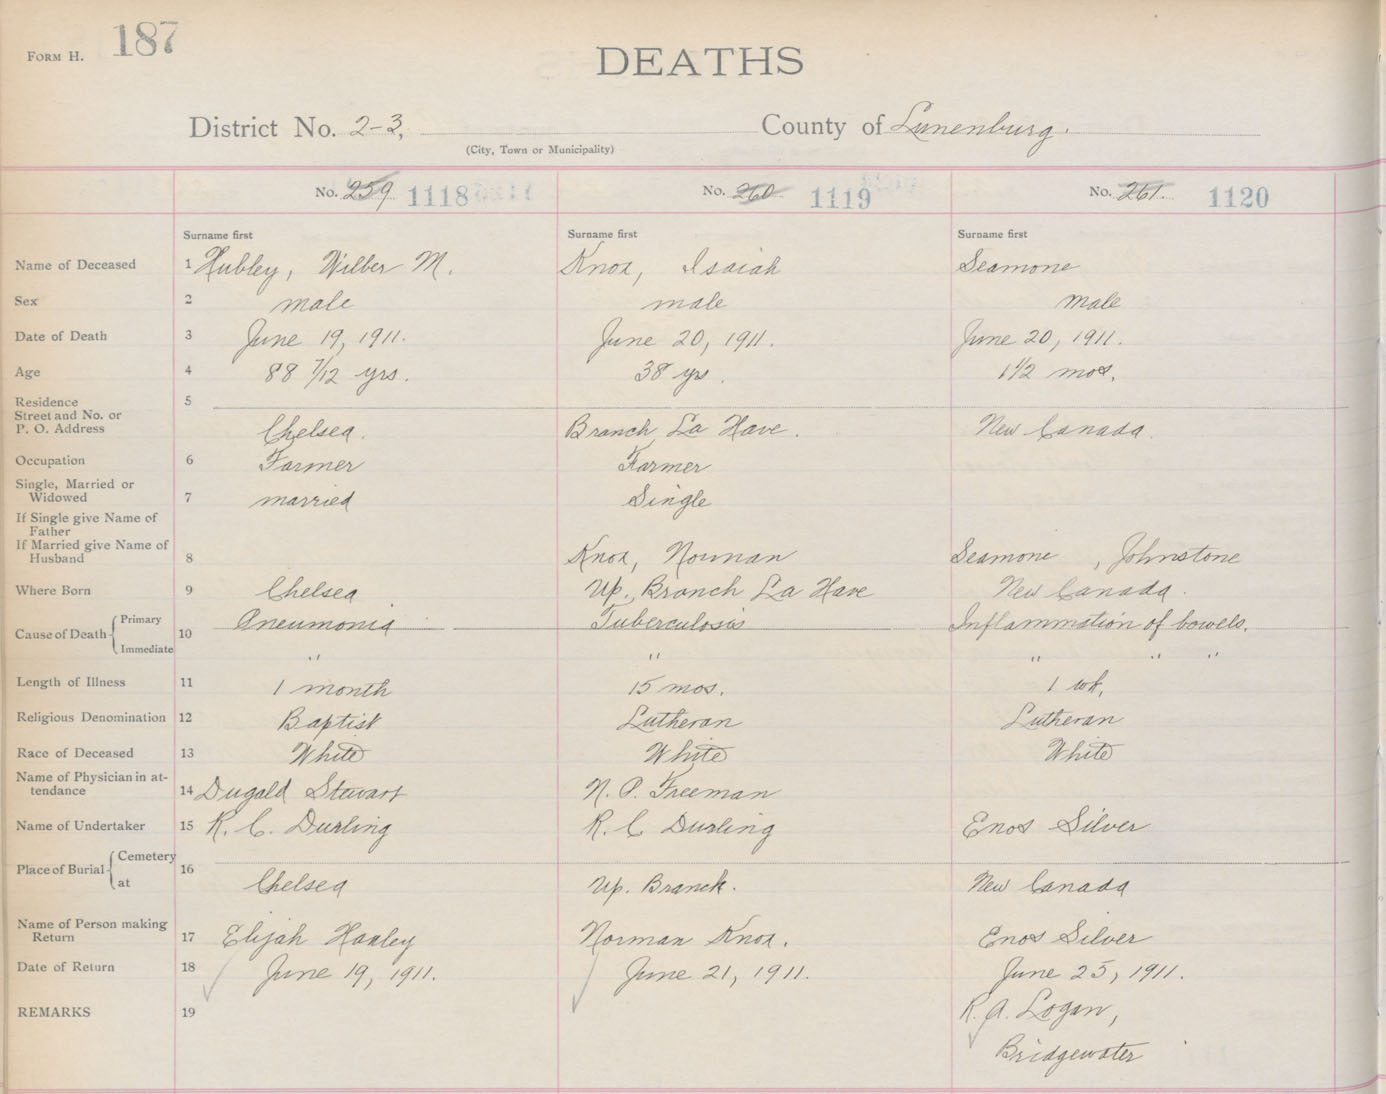 FORM H. 187
DEATHS
District No. 2-3, County of Lunenburg.
(City, Town or Municipality)
No. 259 1118 No. 260 1119 No. 261. 1120
Surname first Surname first Surname first
Name of Deceased 1 Hubley, Wilber M. Knox, Isaiah Seamone
Sex 2 male male male
Date of Death 3 June 19, 1911. June 20, 1911. June 20, 1911.
Age 4 88 7/12 yrs. 38 yrs. 1 1/2 mos.
Residence 5
Street and No. or
P. O. Address Chelsea. Branch La Have. New Canada.
Occupation 6 Farmer Farmer
Single, Married or
Widowed 7 married Single
If Single give Name of
Father
If Married give Name of
Husband 8 Knox, Norman Seamone, Johnstone
Where Born 9 Chelsea Up. Branch La Have New Canada.
Cause of Death Primary 10 Pneumonia Tuberculosis Inflammation of bowels.
Immediate " " " " "
Length of Illness 11 1 month 15 mos. 1 wk.
Religious Denomination 12 Baptist Lutheran Lutheran
Race of Deceased 13 White White White
Name of Physician in at-
tendance 14 Dugald Stewart N. P. Freeman
Name of Undertaker 15 R. C. Durling R. C Durling Enos Silver
Place of Burial Cemetery 16
at Chelsea Up. Branch. New Canada
Name of Person making
Return 17 Elijah Hanley Norman Knox. Enos Silver
Date of Return 18 June 19, 1911. June 21, 1911. June 25, 1911.
REMARKS 19 R. A. Logan,
Bridgewater